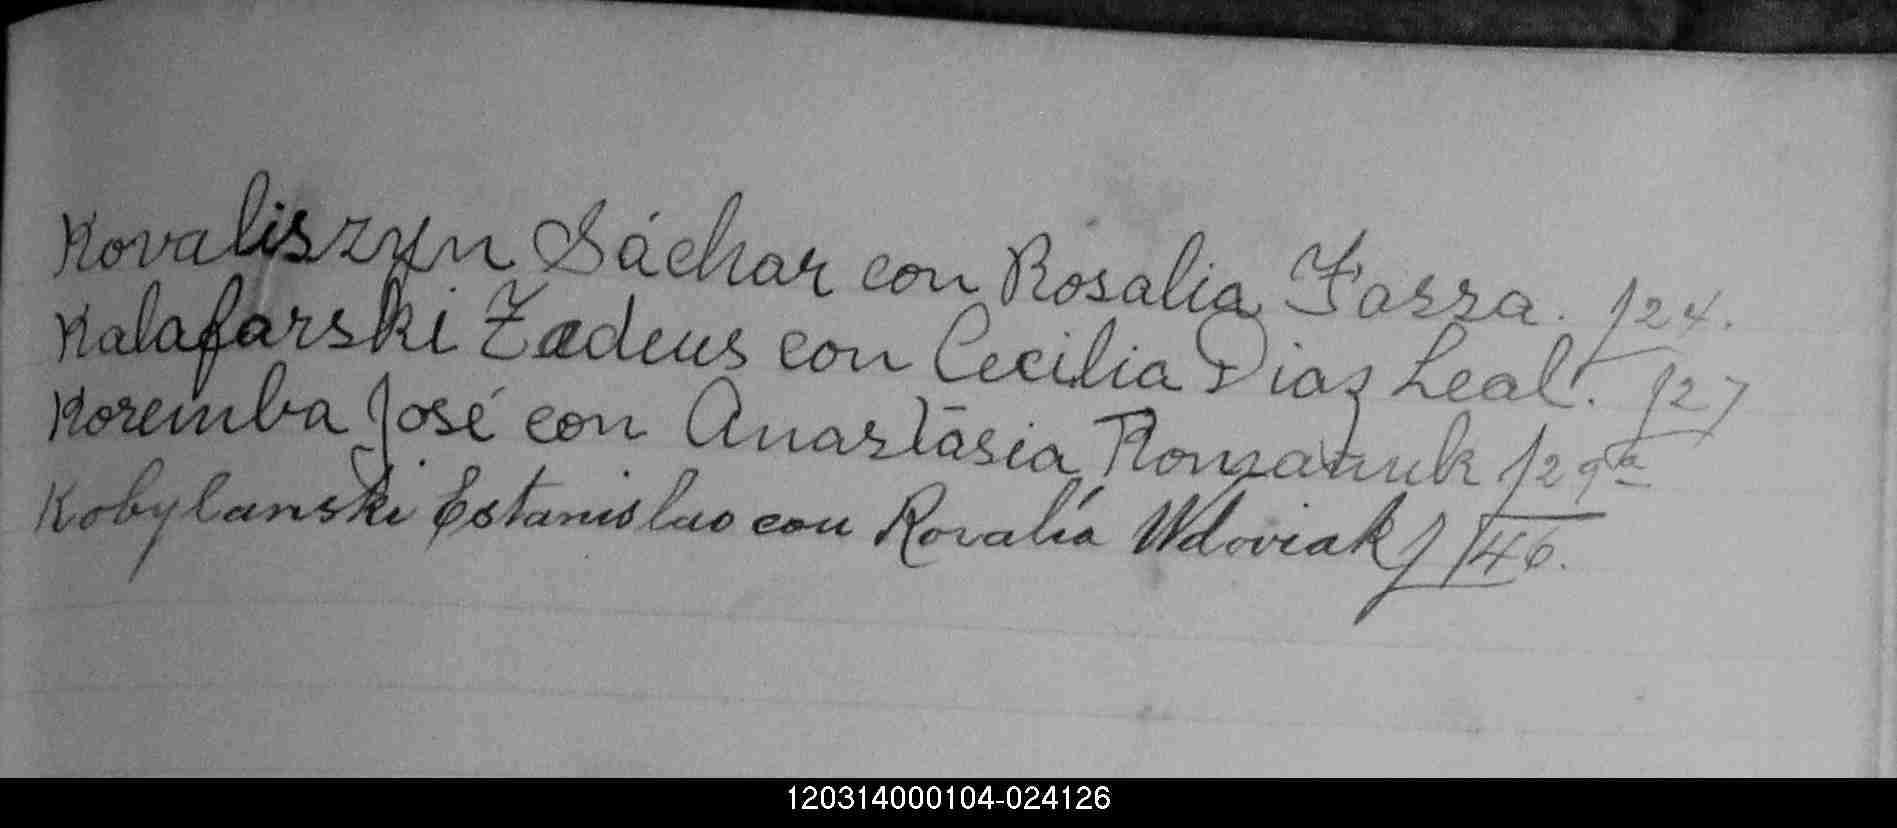 Kovaliszyn Sáchar con Rosalia Fassa. f 24.
Kalafarski Tadeus con Cecilia Diaz Leal. f 27
Koremba José con Anastásia Romzanuk f 29a
Kobylanski Estanislao con Rosalía Wdoviak f 146.
120314000104-024126